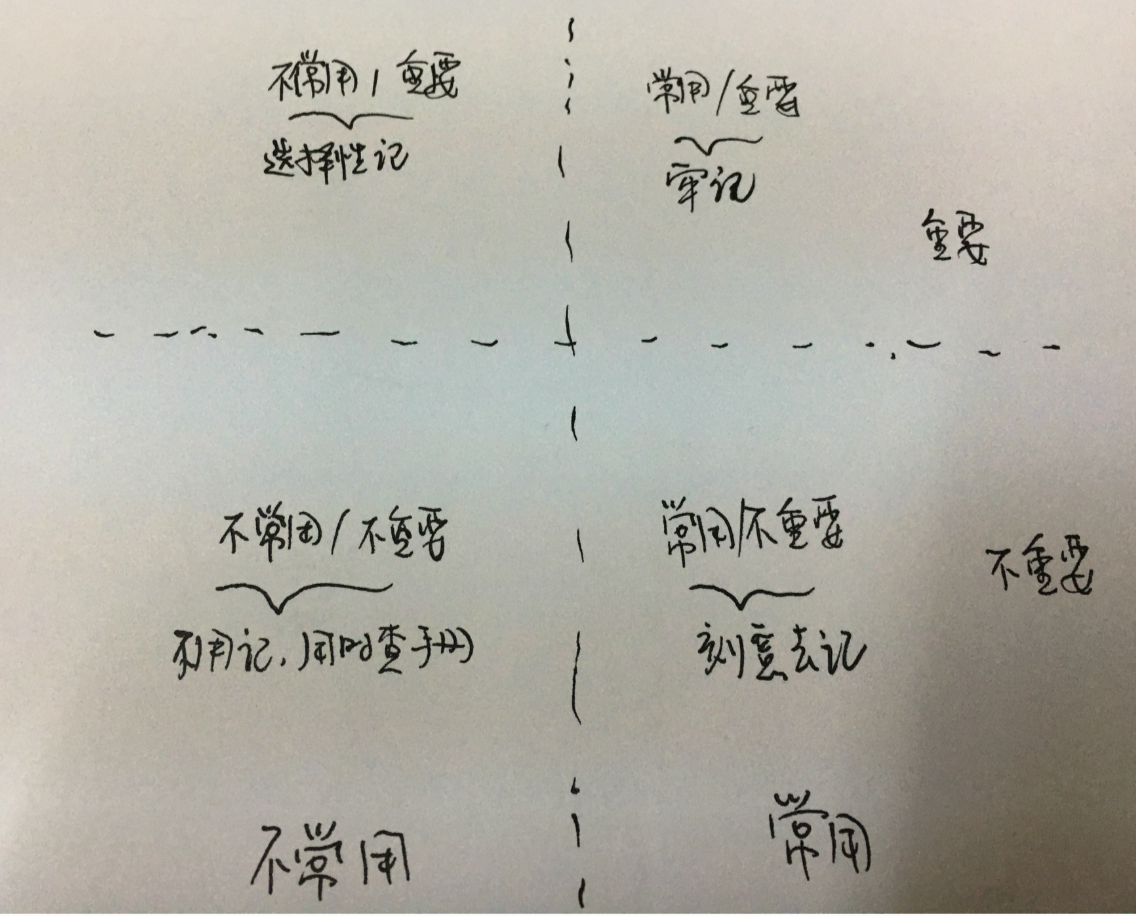 不常用/重要
选择性记
常用/重要
牢记
重要
不常用/不重要
不用记,用时查手册
常用/不重要
刻意去记
不重要
不常用
常用